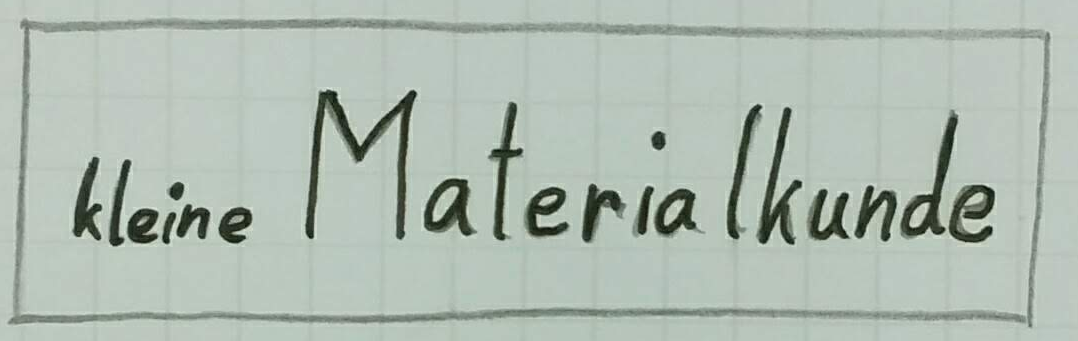 kleine Materialkunde